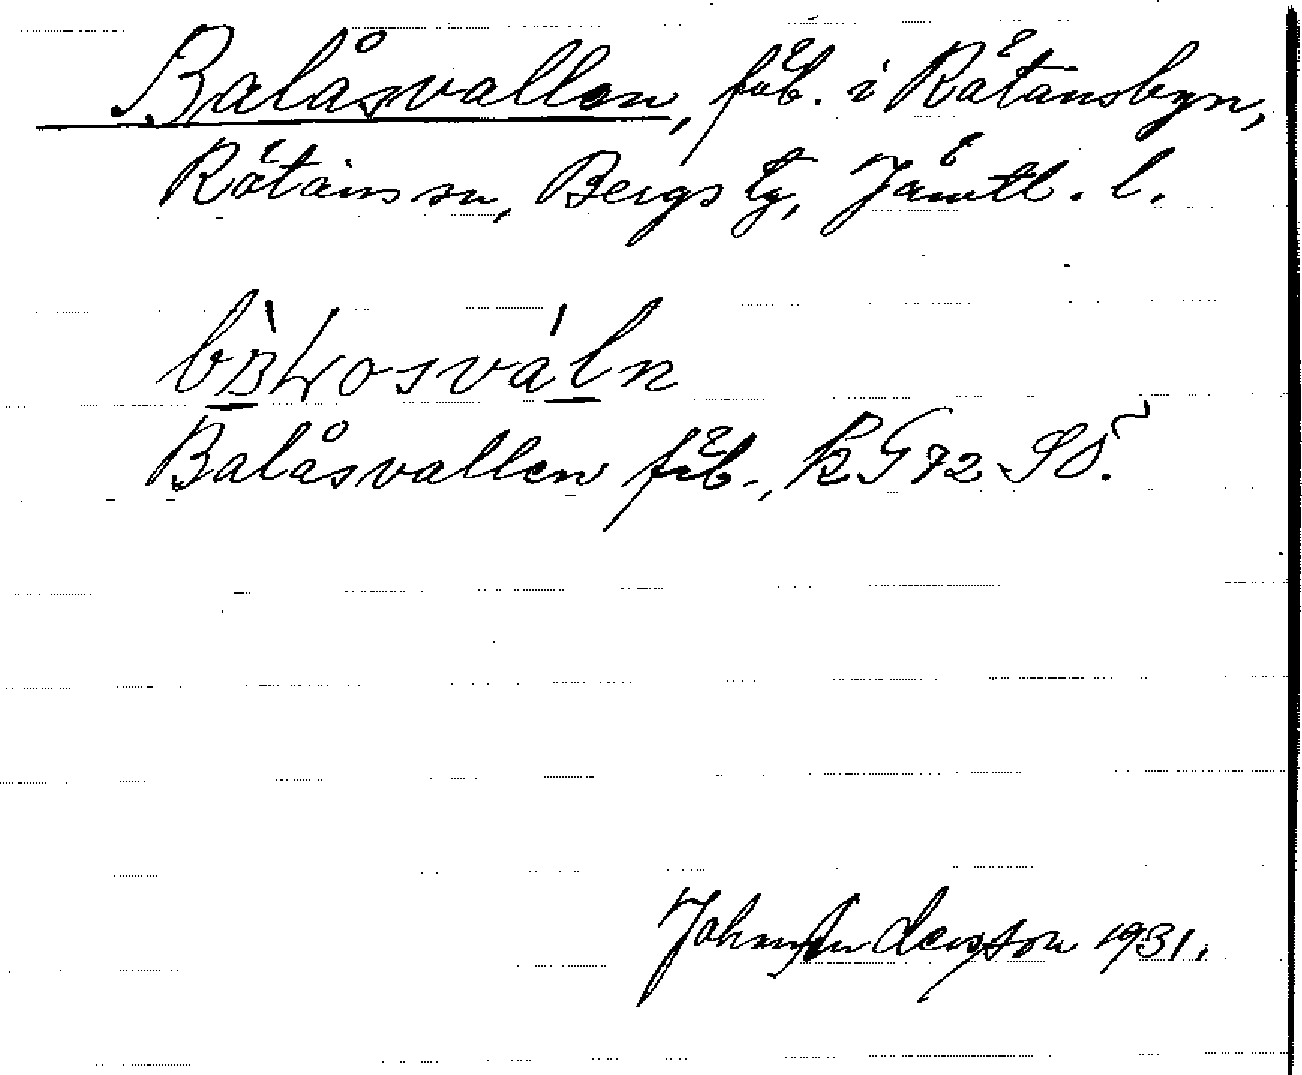 Balåsvallen, fäb. i Rätansbyn,
Rätans sn, Bergs tg, Jämtl. l.
Balåsvallen fäb., kG72 SO.
John Andersson 1931.